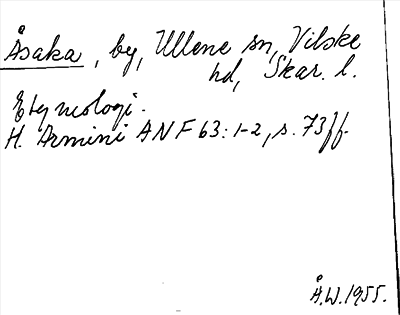 Åsaka, by, Ullene sn, Vilske
hd, Skar. l.
Etymologi.
H. Armini ANF 63:1-2, s. 73ff.
Å.W. 1955.